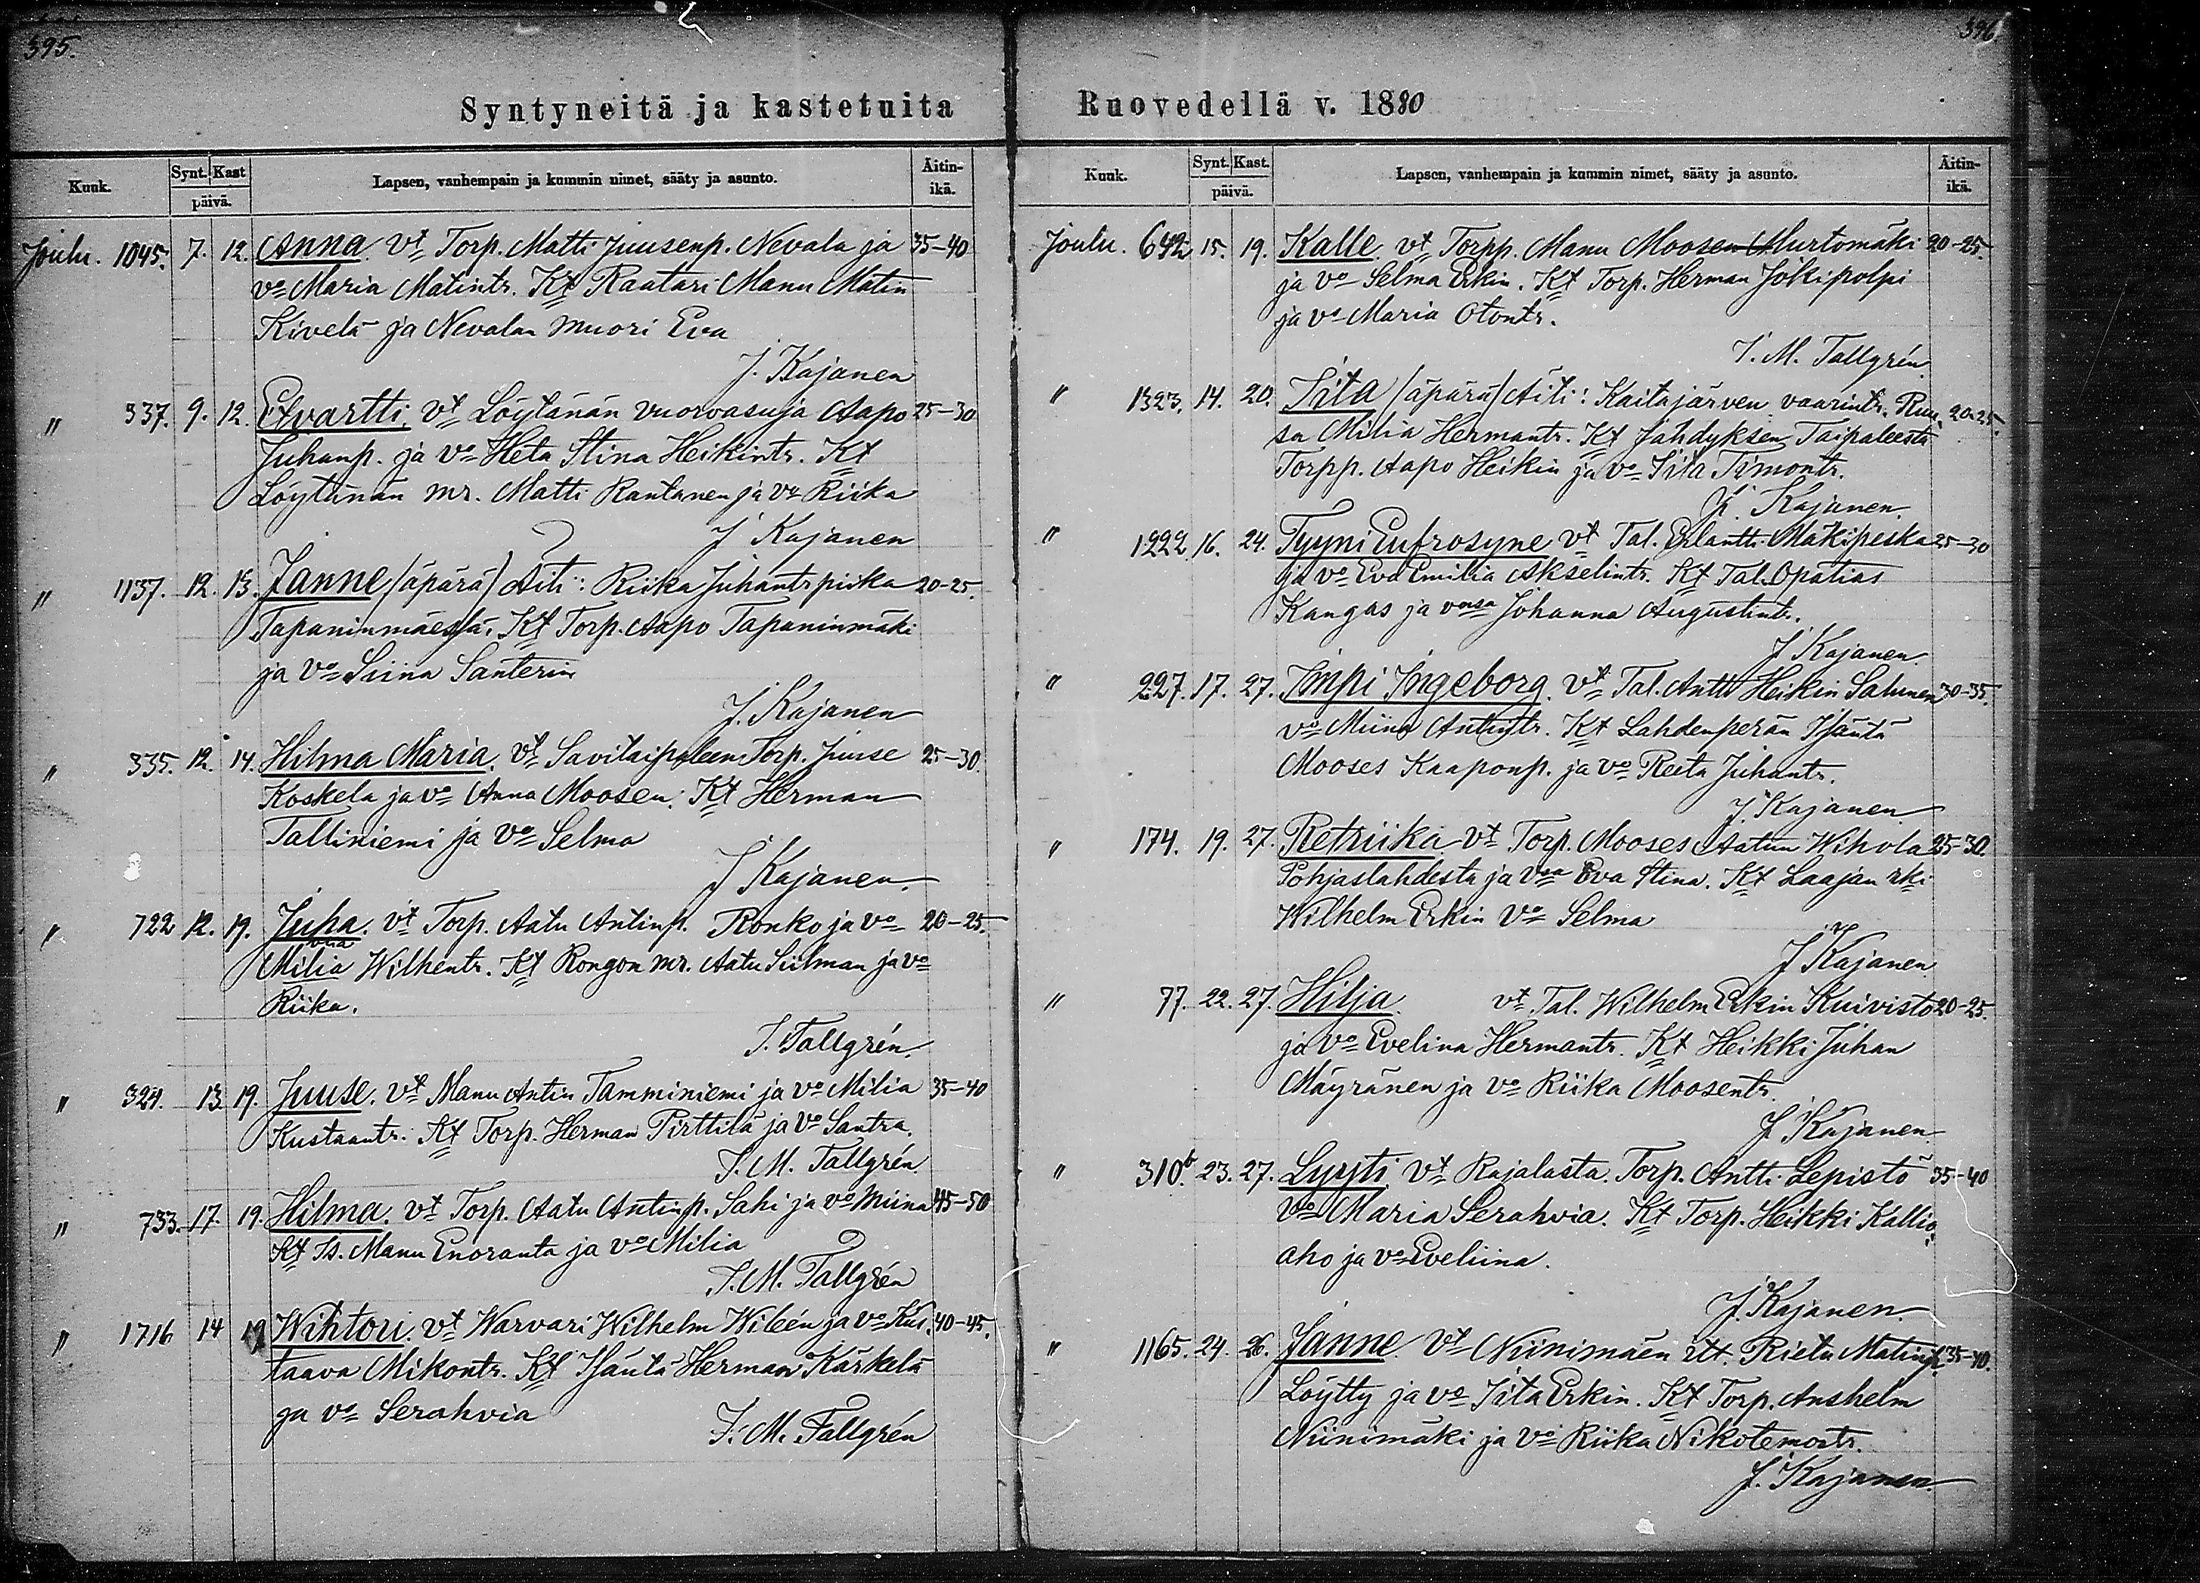 395.
Syntyneitä ja kastetuita
Kuuk. Synt. Kast päivä. Lapsen, vanhempain ja kummin nimet, sääty ja asunto. Äitin-ikä.
Joulu. 1045. 7. 12. Anna. vt Torp. Matti Juusenp. Nevala ja 35-40
vo Maria Matintr. Kt Raatari Manu Matin
Kivelä ja Nevalan muori Eva
J. Kajanen
" 337. 9. 12. Etvartti. vt Löytänän vuorvasuja Aapo 25-30
Juhanp. ja vo Heta Stina Heikintr. Kt
Löytänän mr. Matti Rantanen ja vo Riika
J Kajanen
" 1137. 12. 13. Janne (äpärä) Äiti: Riika Juhantr piika 20-25.
Tapaninmäessä. Kt Torp. Aapo Tapaninmäki
ja vo Siina Santerin
J. Kajanen
" 335. 12. 14. Hilma Maria. vt Savitaipaleen Torp. Juuse 25-30.
Koskela ja vo Anna Moosen. Kt Herman
Talliniemi ja vo Selma
J Kajanen.
" 722 12. 19. Juha. vt Torp. Aatu Antinp. Ronko ja vo 20-25.
Milia Wilhentr. Kt Rongon mr. Aatu Siilman ja vo
Riika.
J. Tallgrén.
" 324. 13 19. Juuse. vt Manu Antin Tamminiemi ja vo Milia 35-40
Kustaantr. Kt Torp. Herman Pirttilä ja vo Santra.
J. M. Tallgrén
" 733. 17. 19. Hilma. vt Torp. Aatu Antinp. Sahi ja vo Miina 45-50
Kt Is. Manu Enoranta ja vo Milia
J. M. Tallgrén
" 1716 14 19 Wihtori. vt Warvari Wilhelm Wileén ja vo Kus 40-45.
taava Mikontr. Kt Isäntä Herman Kärkelä
ja vo Serahvia
J. M. Tallgrén
396.
Ruovedellä v. 1880
Kuuk. Synt. Kast. päivä. Lapsen, vanhempain ja kummin nimet, sääty ja asunto. Äitin-ikä.
Joulu. 642 15. 19. Kalle. vt Torpp. Manu Moosen Murtomäki 20-25.
ja vo Selma Erkin. Kt Torp. Herman Jokipolpi
ja vo Maria Otontr.
J. M. Tallgrén
" 1323. 14. 20. Iita (äpärä) Äiti: Kaitajärven vaarintr. Ruu 20-25.
sa Milia Hermantr. Kt Jähdyksen Taipaleesta
Torpp. Aapo Heikin ja vo Iita Timontr.
J. Kajanen.
" 1222 16. 24. Tyyni Eufrosyne vt Tal. Erlantti Mäkipeska 25-30
ja vo Eva Emilia Akselintr. Kt Tal. Opatias
Kangas ja vonsa Johanna Augustintr.
J Kajanen.
" 227. 17. 27. Impi Ingeborg. vt Tal. Antti Heikin Salunen 30-35.
vo Miina Antintr. Kt Lahdenperän Isäntä
Mooses Kaaponp. ja vo Reeta Juhantr.
J. Kajanen
" 174. 19. 27. Retriika vt Torp. Mooses Aatun Wihola 25-30.
Pohjaslahdesta ja vsa Eva Stina. Kt Laajan rki
Wilhelm Erkin vo Selma
J Kajanen
" 77. 22. 27. Hilja. vt Tal. Wilhelm Erkin Kuivisto 20-25.
ja vo Evelina Hermantr. Kt Heikki Juhan
Mäyränen ja vo Riika Moosentr.
J Kajanen
" 310b. 23. 27. Lyyti. vt Rajalasta. Torp. Antti Lepistö 35-40
vo Maria Serahvia. Kt Torp. Heikki Kallio
aho ja vo Eveliina.
J. Kajanen.
" 1165. 24. 26. Janne. vt Niinimäen Rietu Matinp. 35-40.
Löytty ja vo Iita Erkin. Kt Torp. Anshelm
Niinimäki ja vo Riika Nikotemostr.
J. Kajanen